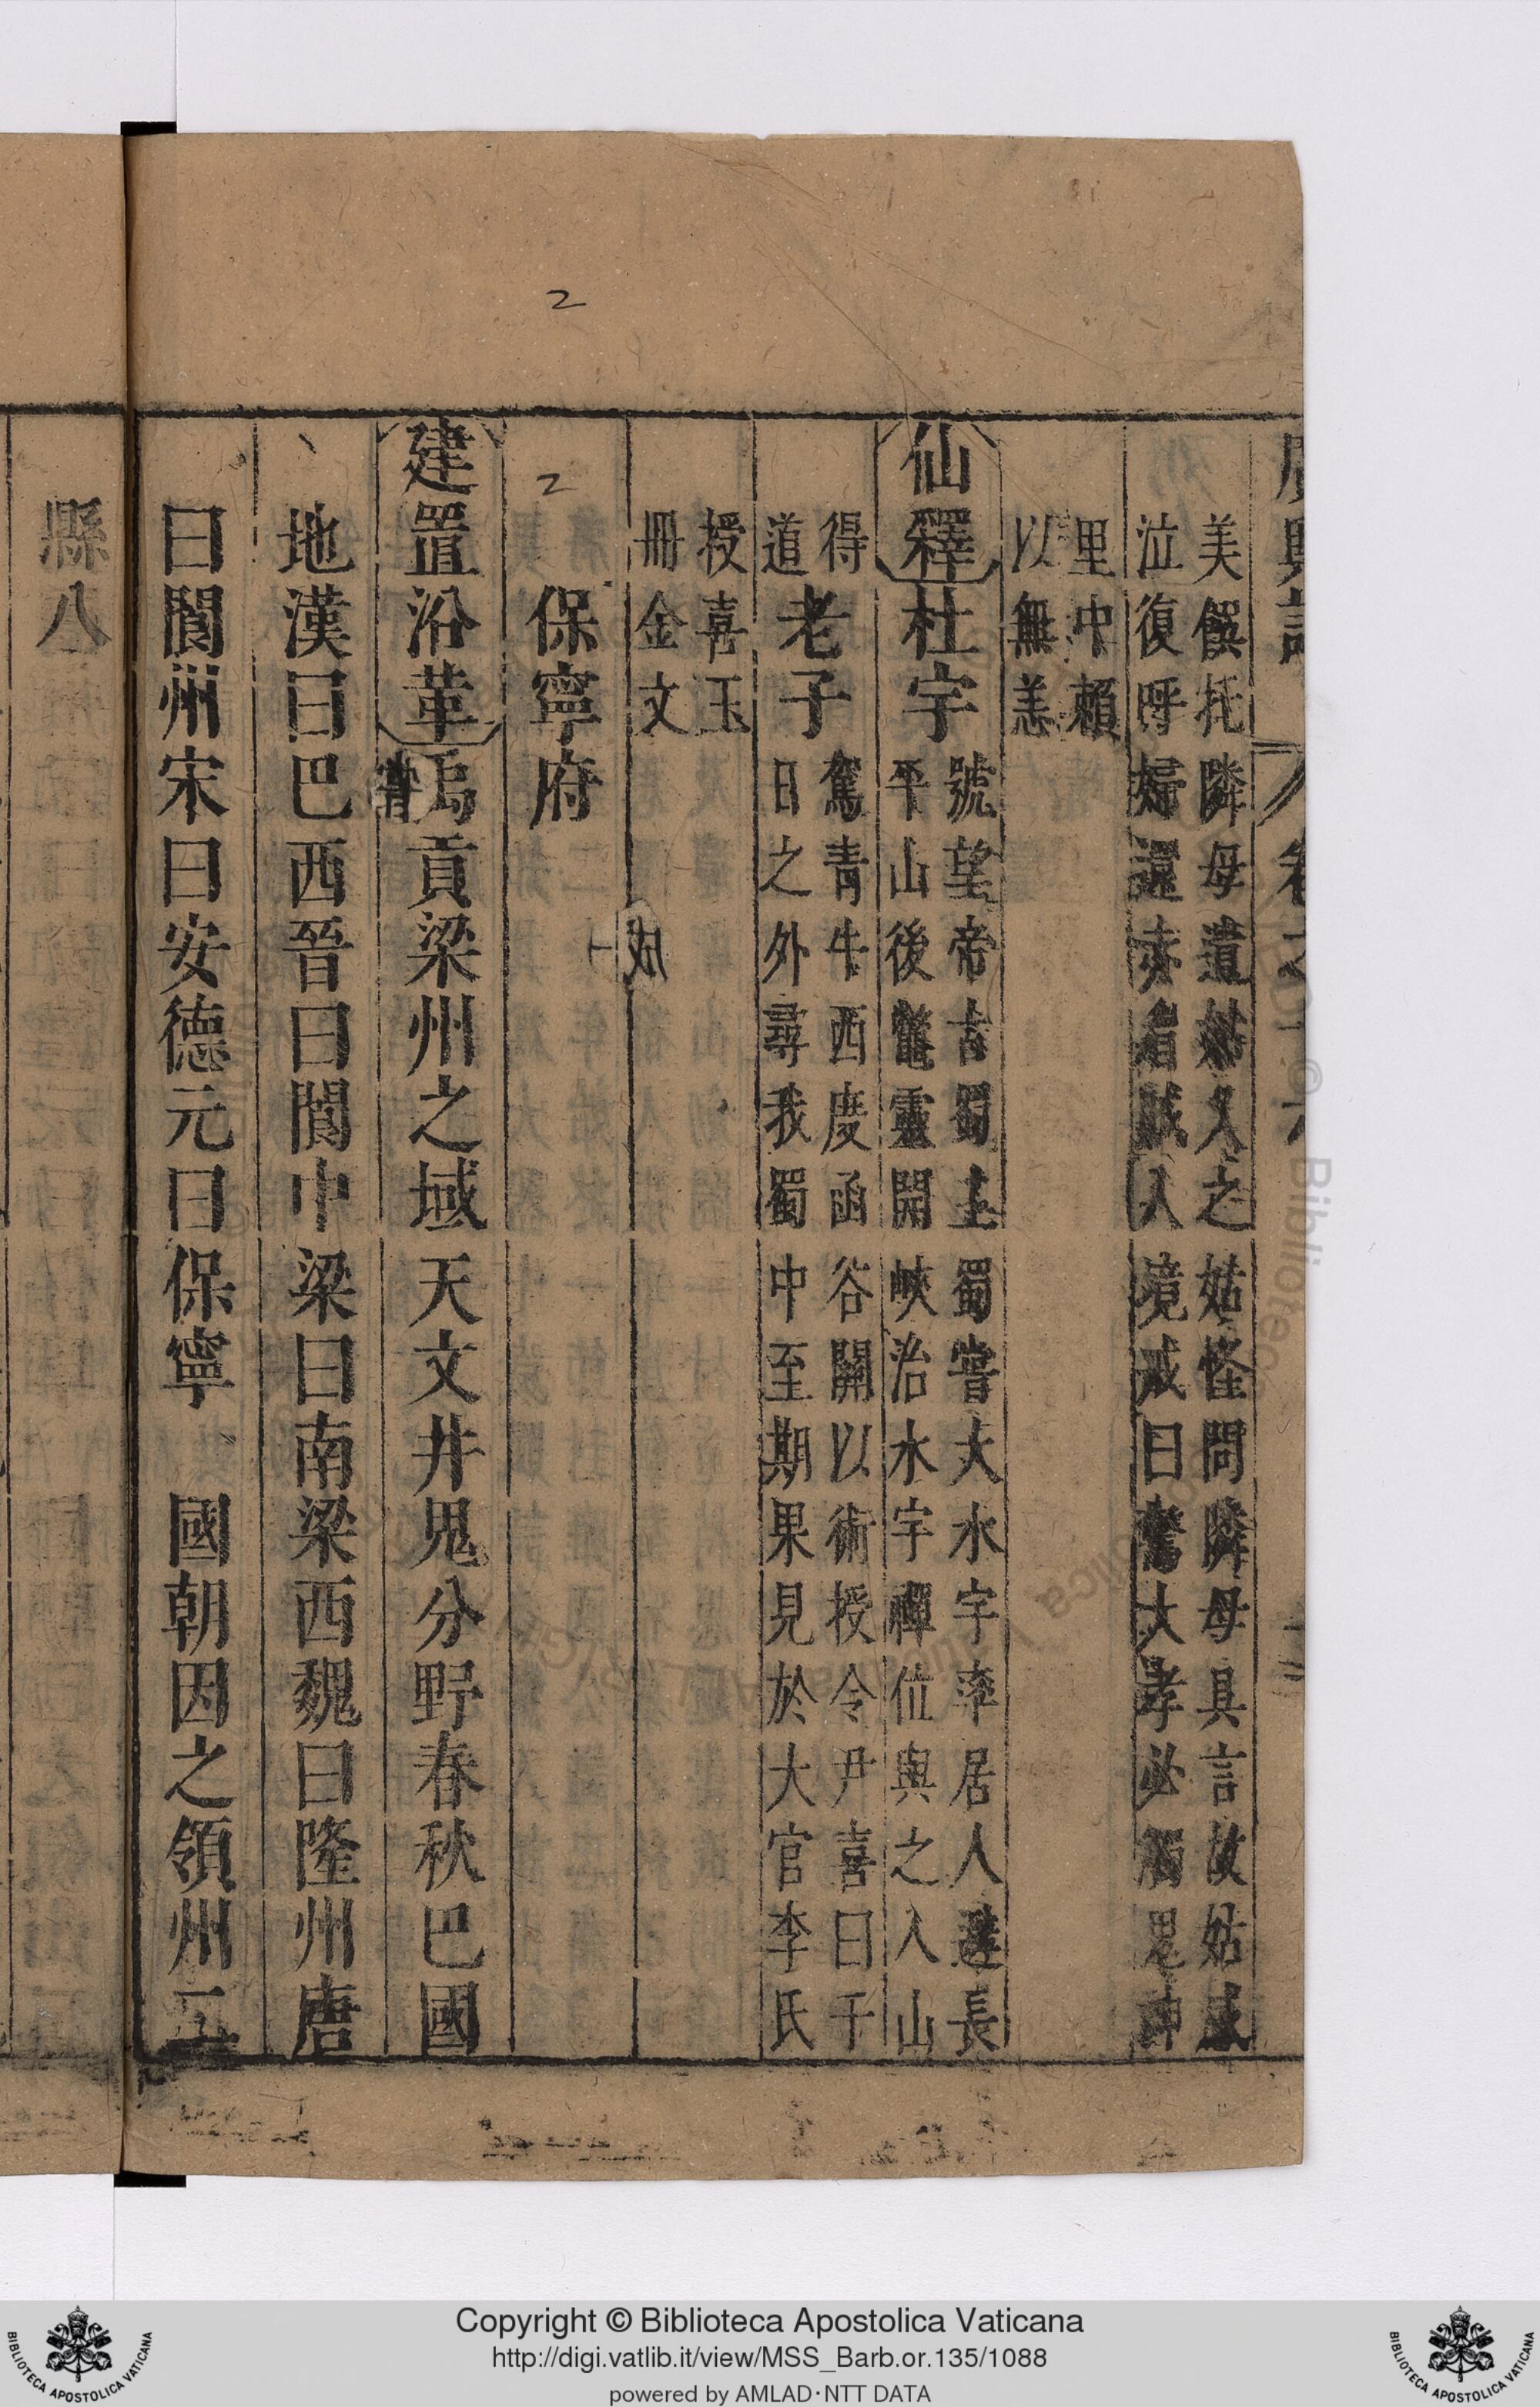 廣輿記 卷之 六
美饌托隣母遺 之姑怪問隣母具言故姑感
泣復呼婦還赤眉賊入境戒曰驚大孝必觸鬼神
里中賴
以無恙
仙釋杜宇
號望帝古蜀主蜀嘗大水宇率居人避長
平山後鼈靈開峽治水宇禪位與之入山
得
道
老子
駕青牛西度函谷關以術授令尹喜曰于
日之外尋我蜀中至期果見於大官李氏
授喜玉
冊金文
保寧府
2
2
建置沿革
禹貢梁州之域天文井鬼分野春秋巴國
地漢曰巴西晉曰閬中梁曰南梁西魏曰隆州唐
曰閬州宋曰安德元曰保寧 國朝因之領州二
縣八
Copyright © Biblioteca Apostolica Vaticana
http://digi.vatlib.it/view/MSS_Barb.or.135/1088
powered by AMLAD·NTT DATA
BIBLIOTECA APOSTOLICA VATICANA
BIBLIOTECA APOSTOLICA VATICANA